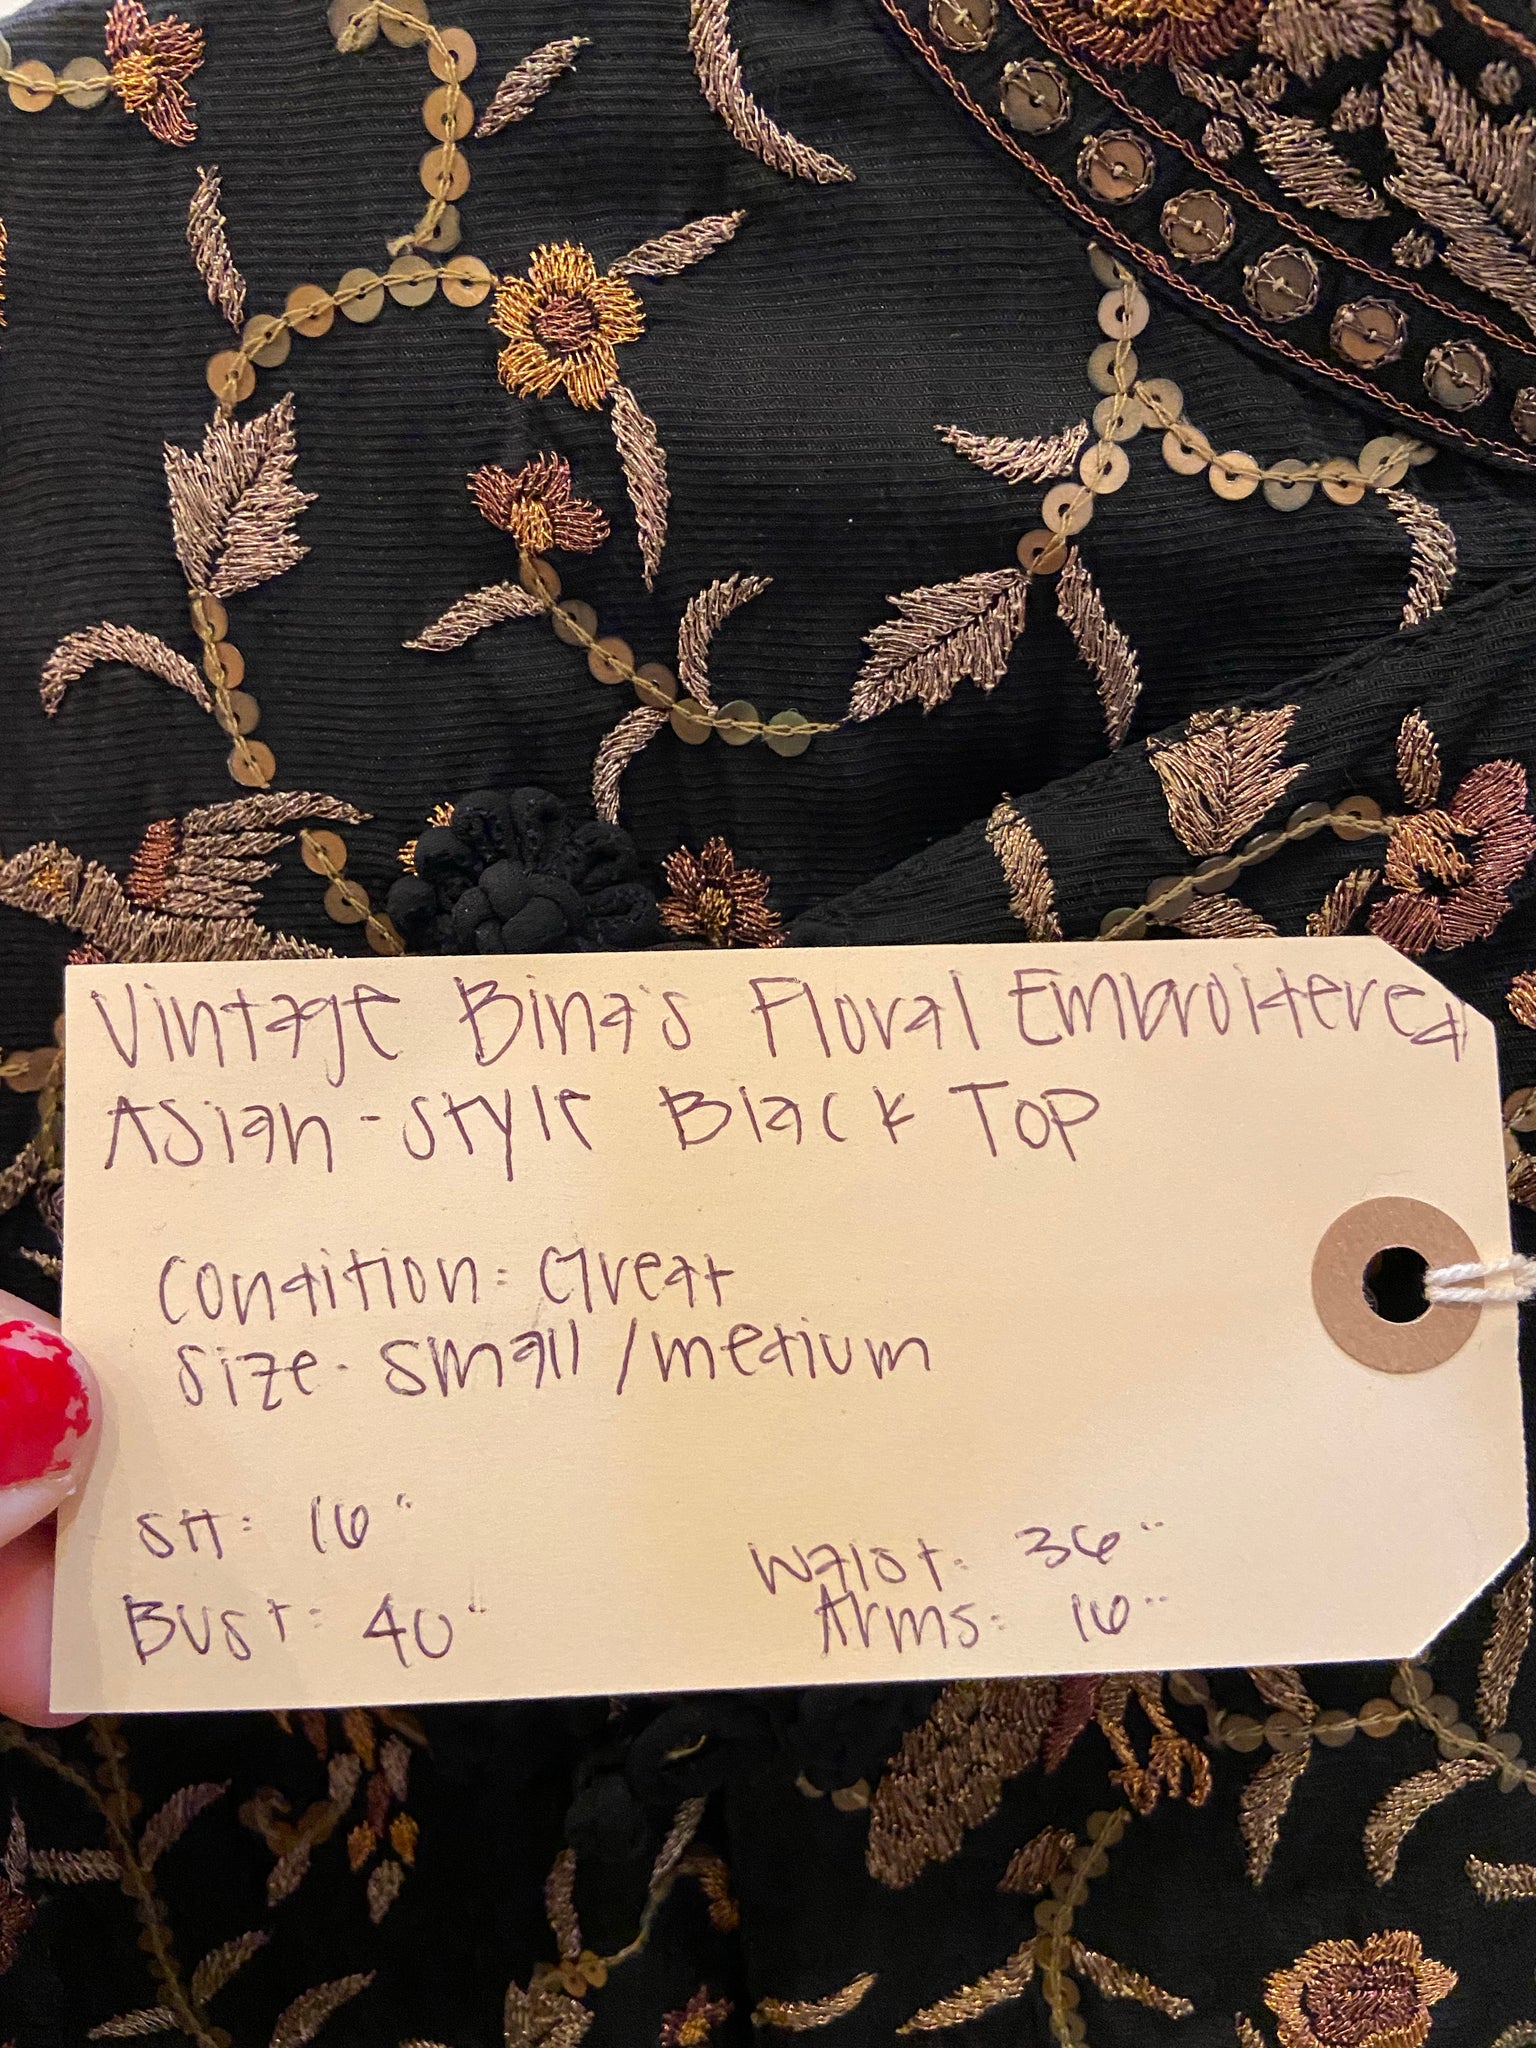 Vintage Bina's Floral Embroidered
Asian-style Black Top
Condition: Great
Size- Small / medium
SH: 16"
Waist: 36"
Bust: 40"
Arms: 16"